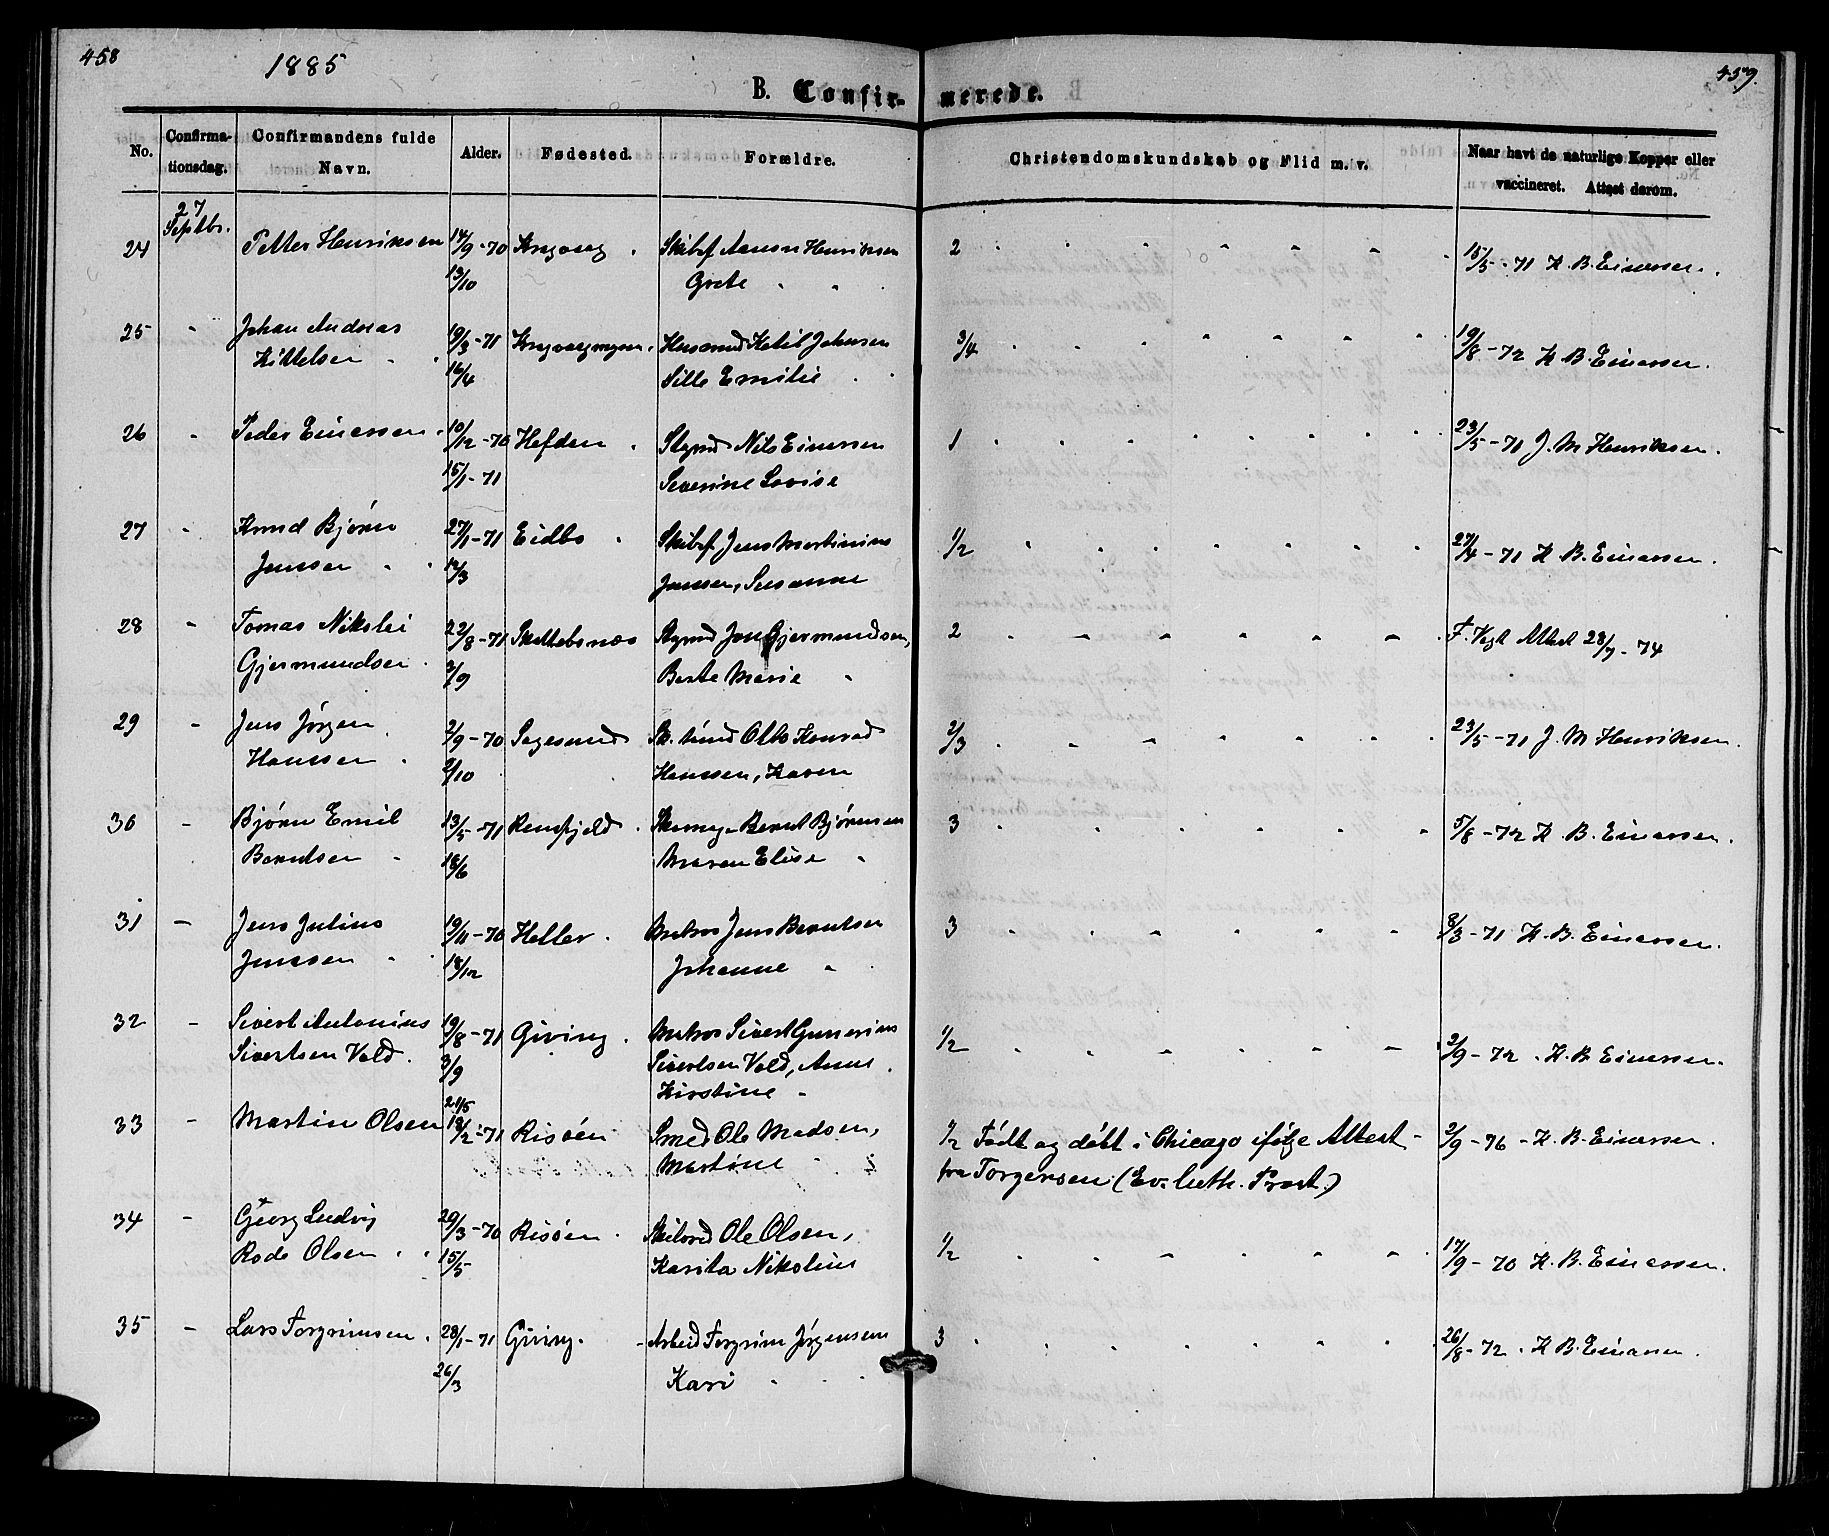 458
1885
B. Confir-
merede.
459.
No.
Confirma-
tionsdag.
Confirmandens fulde
Navn.
Alder.
Fødested.
Forældre.
Christendomskundskab og Flid m. v.
Naar havt de naturlige Kopper eller
vaccineret. Attest darom.
27
Septbr.
24 Petter Henriksen 14/9-70 Henriksen 2 15/5-71 K. B. Einersen.
13/10 Grete
25 Johan Andreas 19/3-71 Ketil Johnsen 3/4 19/8-72 K B. Einersen.
Kittelsen 16/4 Sille Emilie
26 Peder Einersen 10/12-70 Hefden Nils Einersen 1 23/5-71 J. M Henriksen.
15/1-71 Severine Lovise
27 Knud Bjørn 27/1-71 Eidbo Skibsf Jens Martinius 1/2 27/4-71 K B. Einersen.
Jenssen 12/3 Jenssen, Susanne
28 Tomas Nikolei 22/8-71 Skuttebsnæs Jens Gjermundsen, 2 F. Vogt Attest 28/7-74
Gjermundsen 3/9 Berte Marie
29 Jens Jørgen 2/9-70 Sagesund Otto Konrad 2/3 23/5-71 J. M Henriksen.
Hanssen 2/10 Hanssen, Karen
30 Bjørn Emil 13/5-71 Rensfjeld Bernt Bjørnsen 3 5/8-72 K B. Einersen.
Berntsen 18/6 Maren Elise
31 Jens Julius 19/11-70 Heller Jens Berntsen 3 8/3-71 K. B. Einersen.
Jenssen 18/12 Johanne
32 Sivert Antonius 19/8-71 Giving Matros Sivert Gunerius 1/2 2/9-72 K. B Einersen.
Sivertsen Vold. 3/9 Sivertsen Vold, Anne
Kirstine
33 Martin Olsen 18/2-71 Risøen Smed Ole Madsen, 1/2 Født og døbt i Chicago ifølge Attest 2/9-76 K. B. Einersen.
21/5 Martine fra Torgersen (Ev. luth. Præst.)
34 Georg Ludvig 20/3-70 Risøen Ole Olsen, 1/2 17/9-70 K. B. Einersen.
Rode Olsen 15/5 Karita Nikoline
35 Lars Torgrimsen 28/1-71 Giving. Arbeid Torgrim Jørgensen 3 26/8-72 K B. Einersen.
26/3 Kari